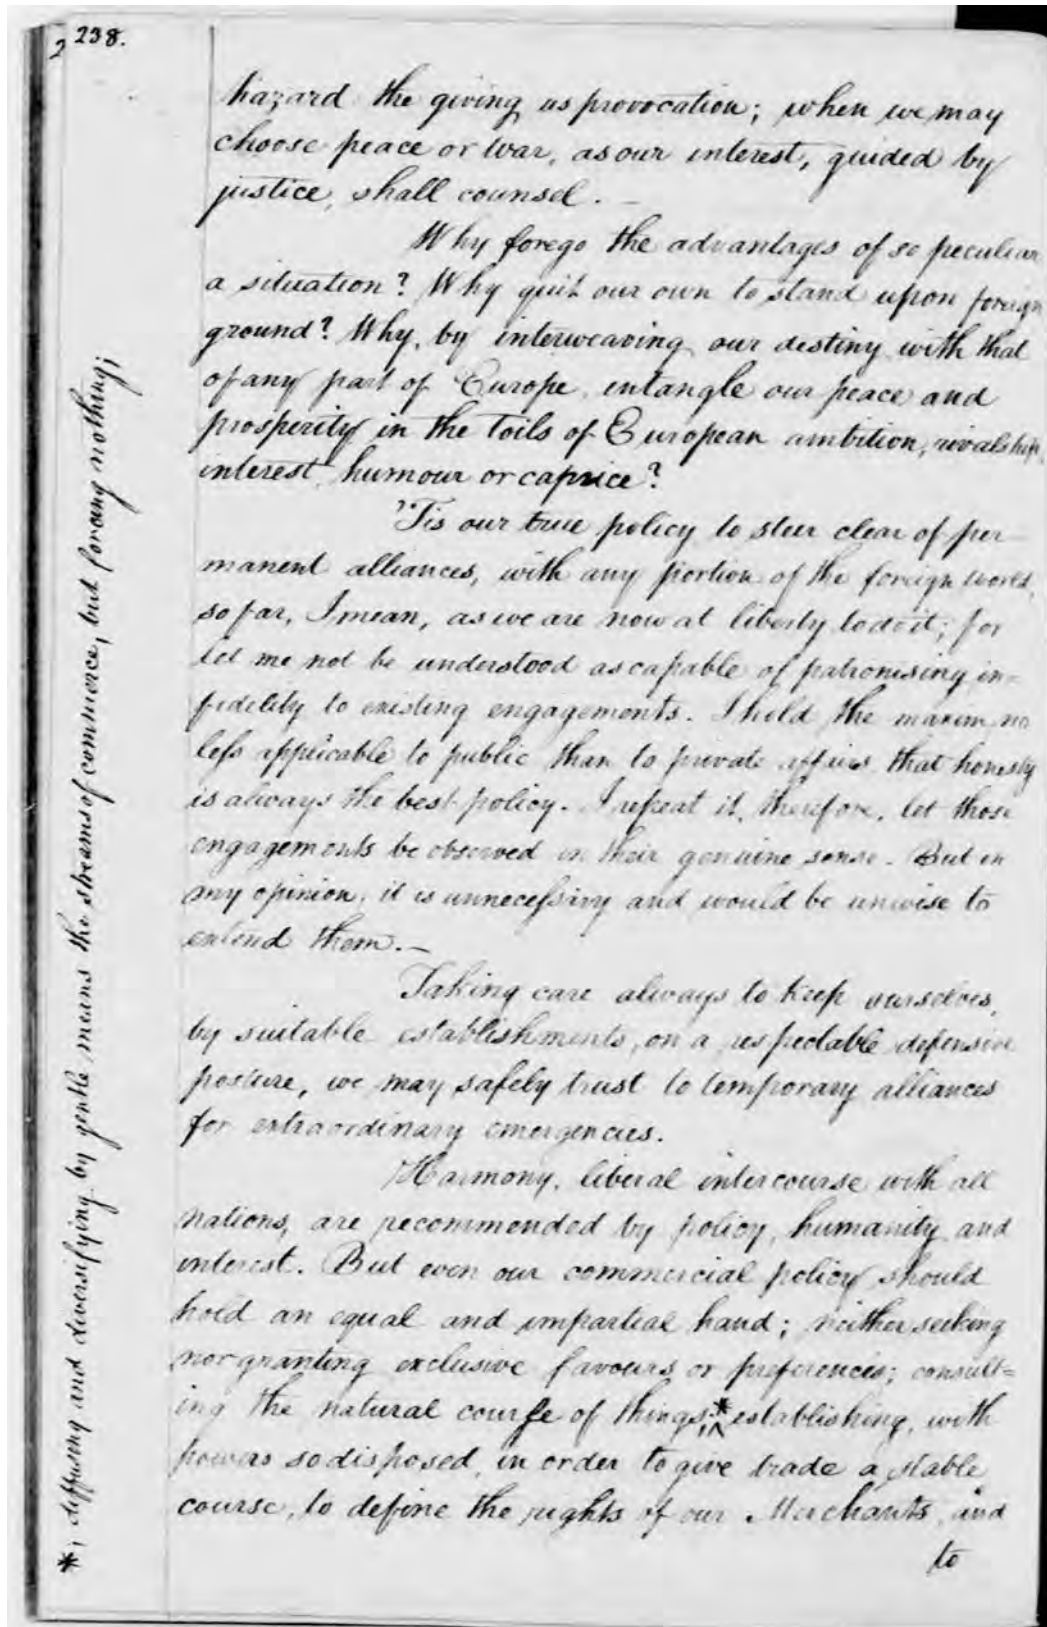 2 238.
hazard the giving us provocation; when we may
choose peace or war, as our interest, guided by
justice, shall counsel. —
Why forego the advantages of so peculiar
a situation? Why quit our own to stand upon foreign
ground? Why, by interweaving our destiny with that
of any part of Europe, entangle our peace and
prosperity in the toils of European ambition, rivalship,
interest, humour or caprice?
'Tis our true policy to steer clear of per
manent alliances, with any portion of the foreign world,
so far, I mean, as we are now at liberty to do it; for
let me not be understood as capable of patronising in=
fidelity to existing engagements. I hold the maxim no
less applicable to public than to private affairs that honesty
is always the best policy. I repeat it, therefore, let those
engagements be observed in their genuine sense. But in
my opinion, it is unnecessary and would be unwise to
extend them. —
Taking care always to keep ourselves,
by suitable establishments, on a respectable defensive
posture, we may safely trust to temporary alliances
for extraordinary emergencies.
Harmony, liberal intercourse with all
nations, are recommended by policy, humanity and
interest. But even our commercial policy should
hold an equal and impartial hand; neither seeking
nor granting exclusive favours or preferences; consult=
ing the natural course of things;* establishing, with
powers so disposed, in order to give trade a stable
course, to define the rights of our Merchants, and
to
*, diffusing and diversifying by gentle means the streams of commerce, but forcing nothing;